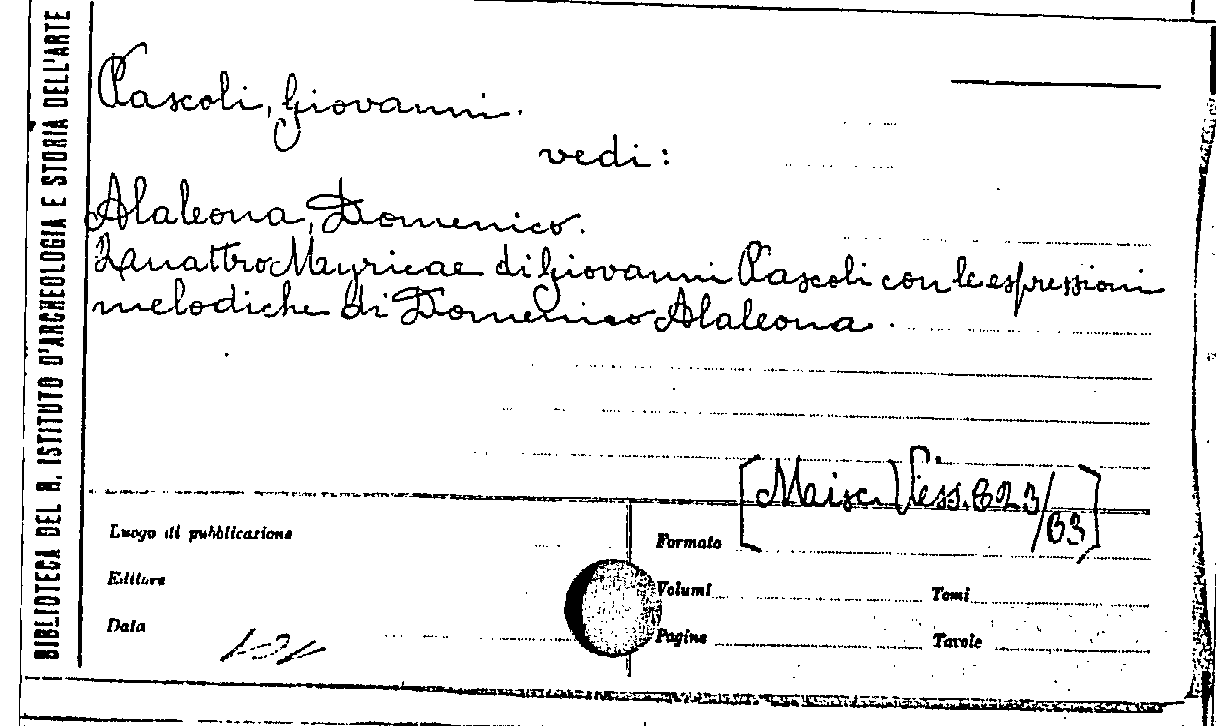 BIBLIOTECA DEL R. ISTITUTO D'ARCHEOLOGIA E STORIA DELL'ARTE
Pascoli, Giovanni.
vedi:
Alaleona, Domenico.
Quattro Myricae di Giovanni Pascoli con le espressioni
melodiche di Domenico Alaleona.
[Misc. Vess. 823/
Luogo di pubblicazione
Formato
Editore
Volumi
Tomi
Data
Pagine
Tavole